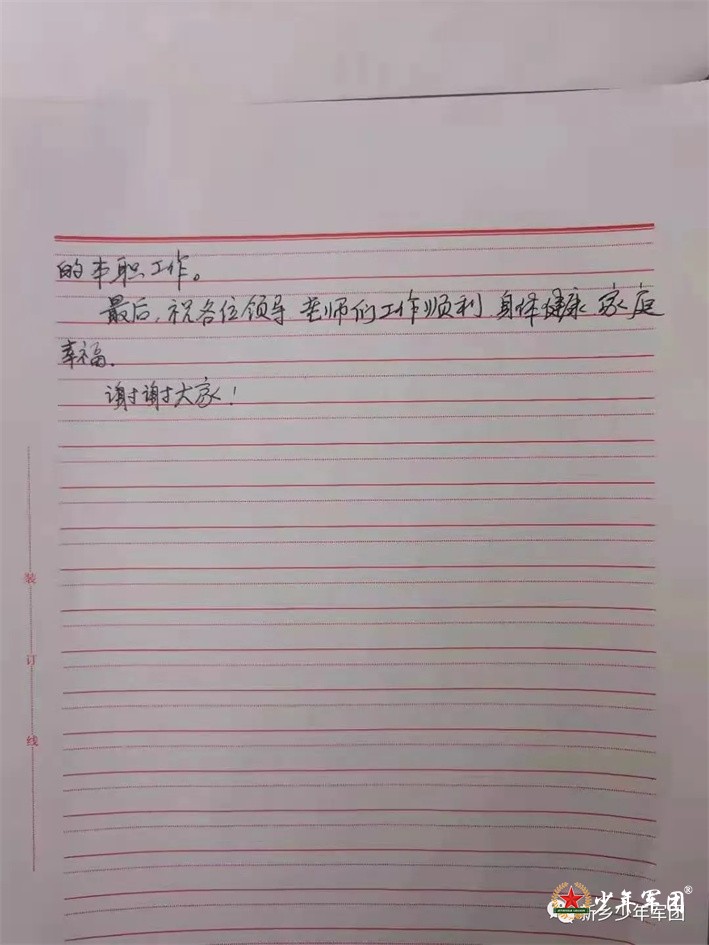 的本职工作。
最后，祝各位领导 老师们工作顺利 身体健康 家庭
幸福.
谢谢大家！
装
订
线
少年军团®
新乡少年军团